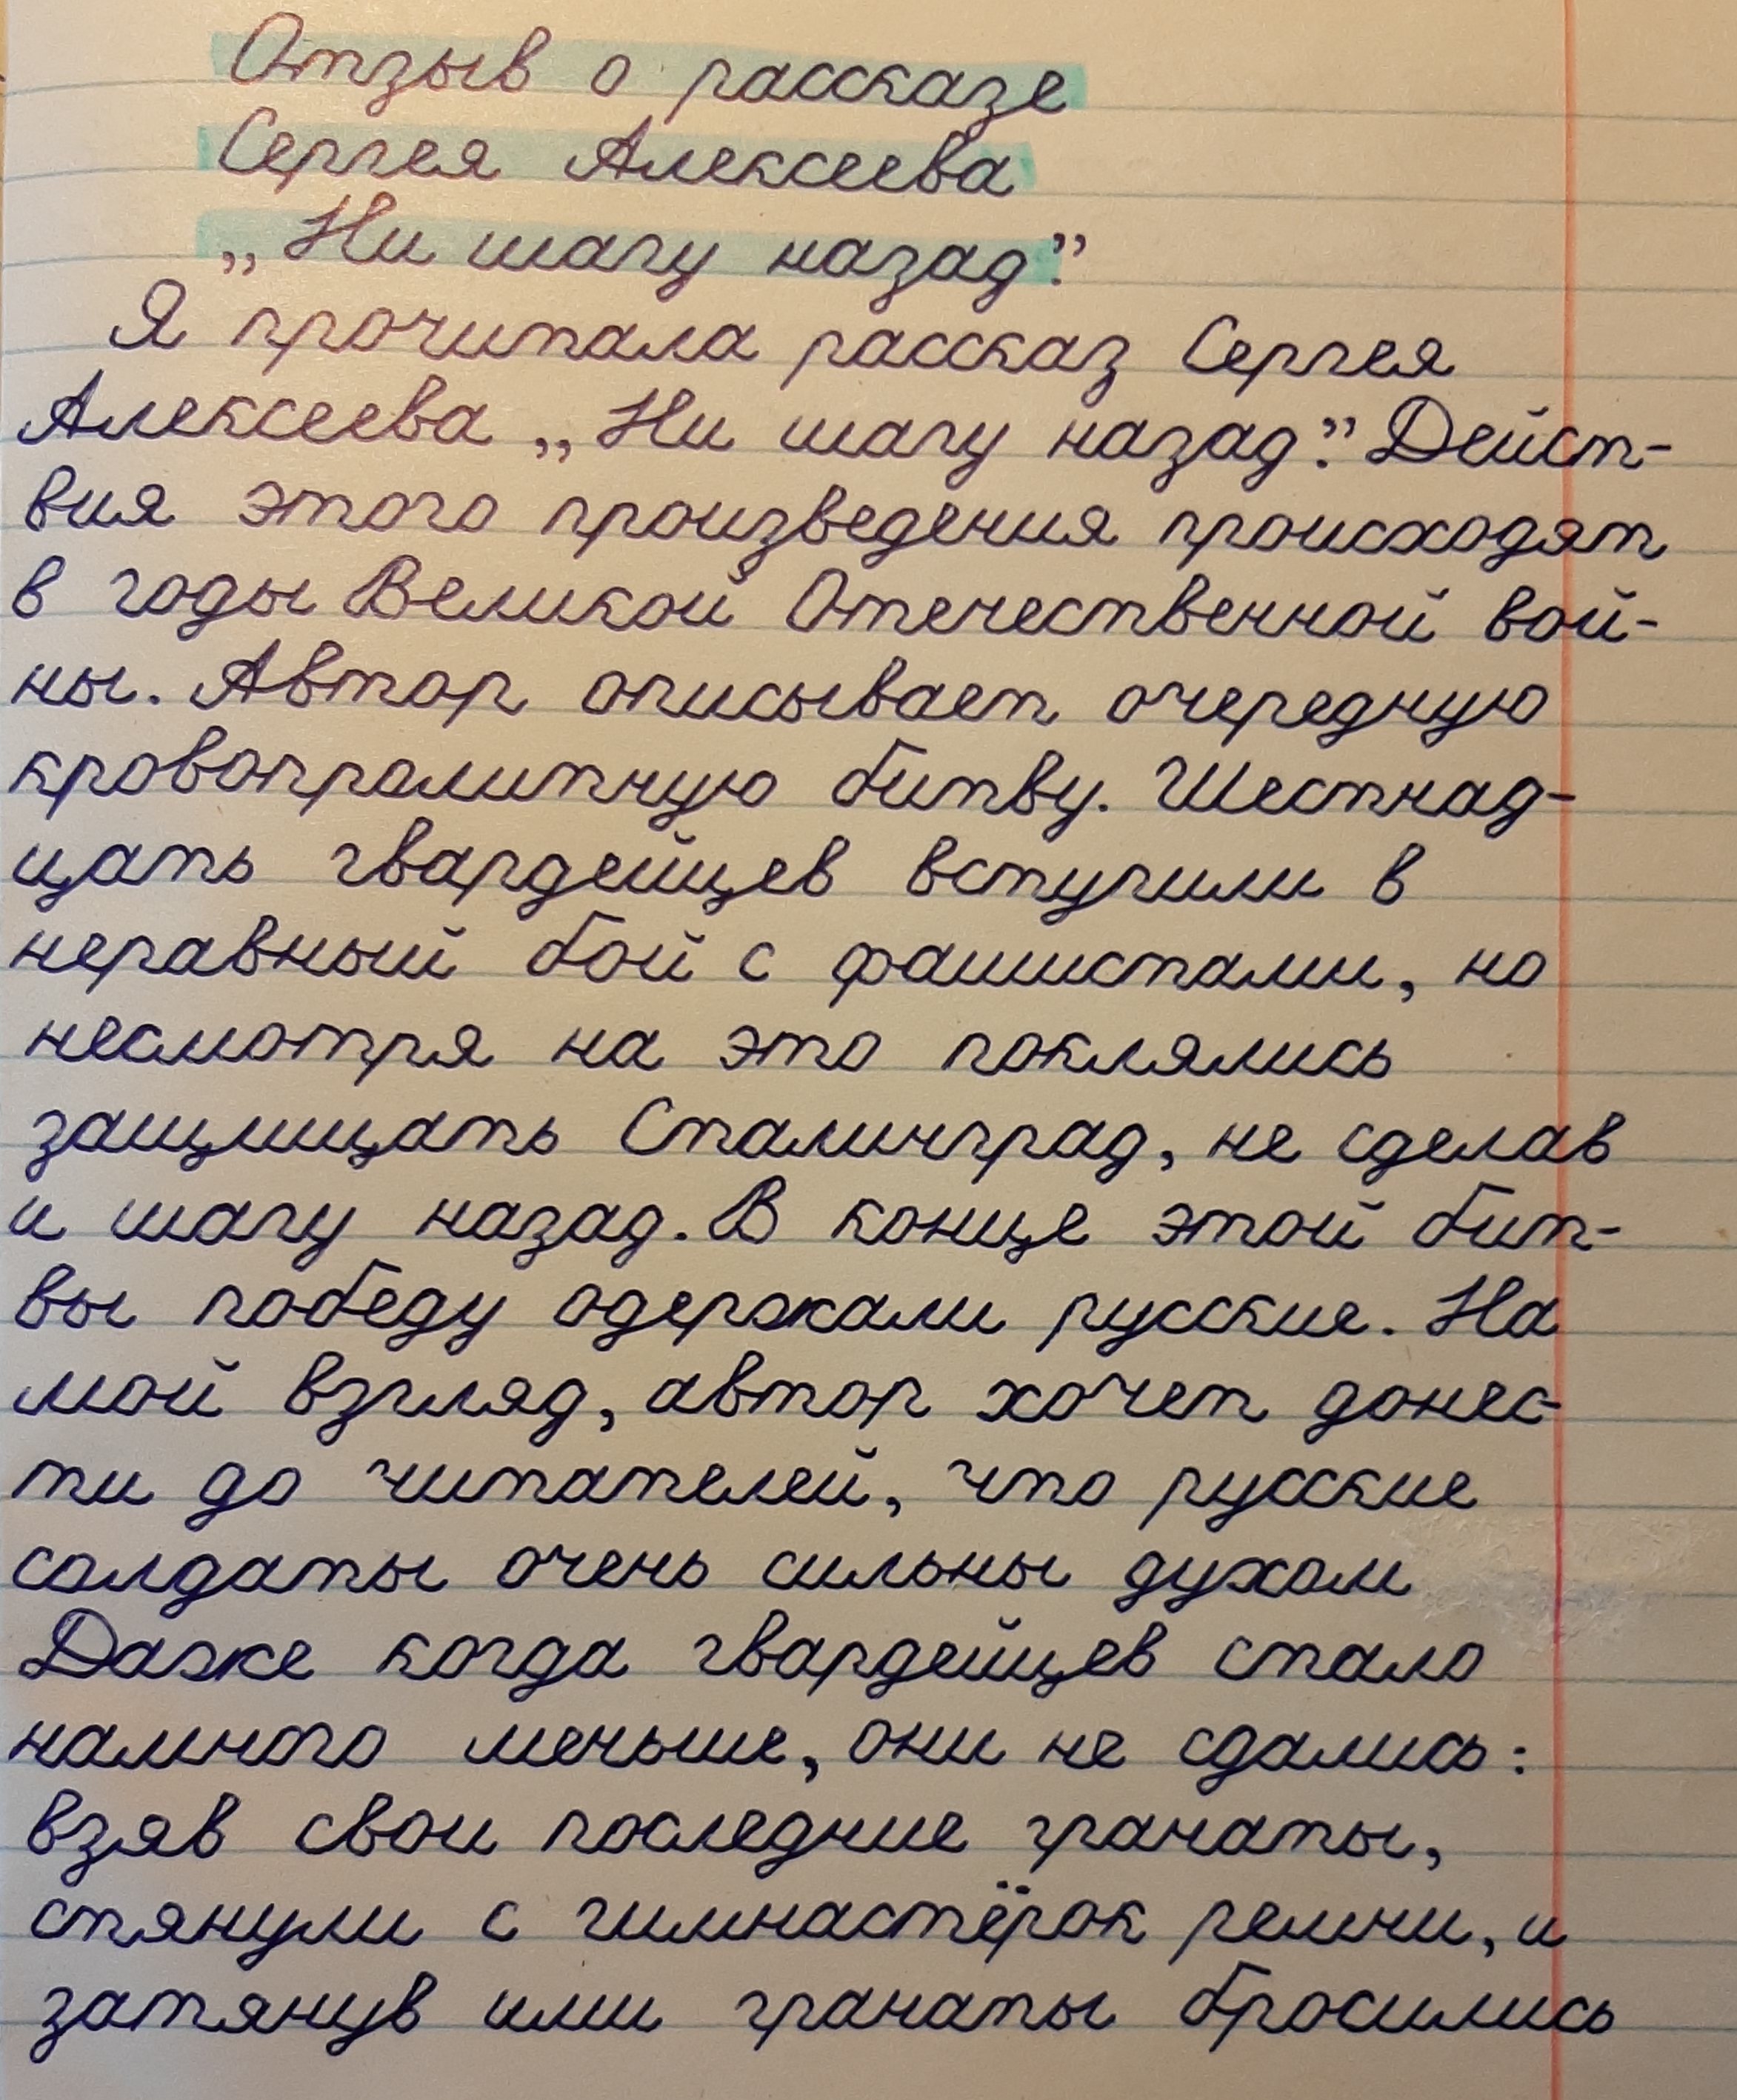 Отзыв о рассказе
Сергея Алексеева
„Ни шагу назад".
Я прочитала рассказ Сергея
Алексеева „Ни шагу назад". Дейст-
вия этого произведения происходят
в годы Великой Отечественной вой-
ны. Автор описывает очередную
кровопролитную битву. Шестнад-
цать гвардейцев вступили в
неравный бой с фашистами, но
несмотря на это поклялись
защищать Сталинград, не сделав
и шагу назад. В конце этой бит-
вы победу одержали русские. На
мой взгляд, автор хочет донес-
ти до читателей, что русские
солдаты очень сильны духом
Даже когда гвардейцев стало
намного меньше, они не сдались:
взяв свои последние гранаты,
стянули с гимнастёрок ремни, и
затянув ими гранаты бросились